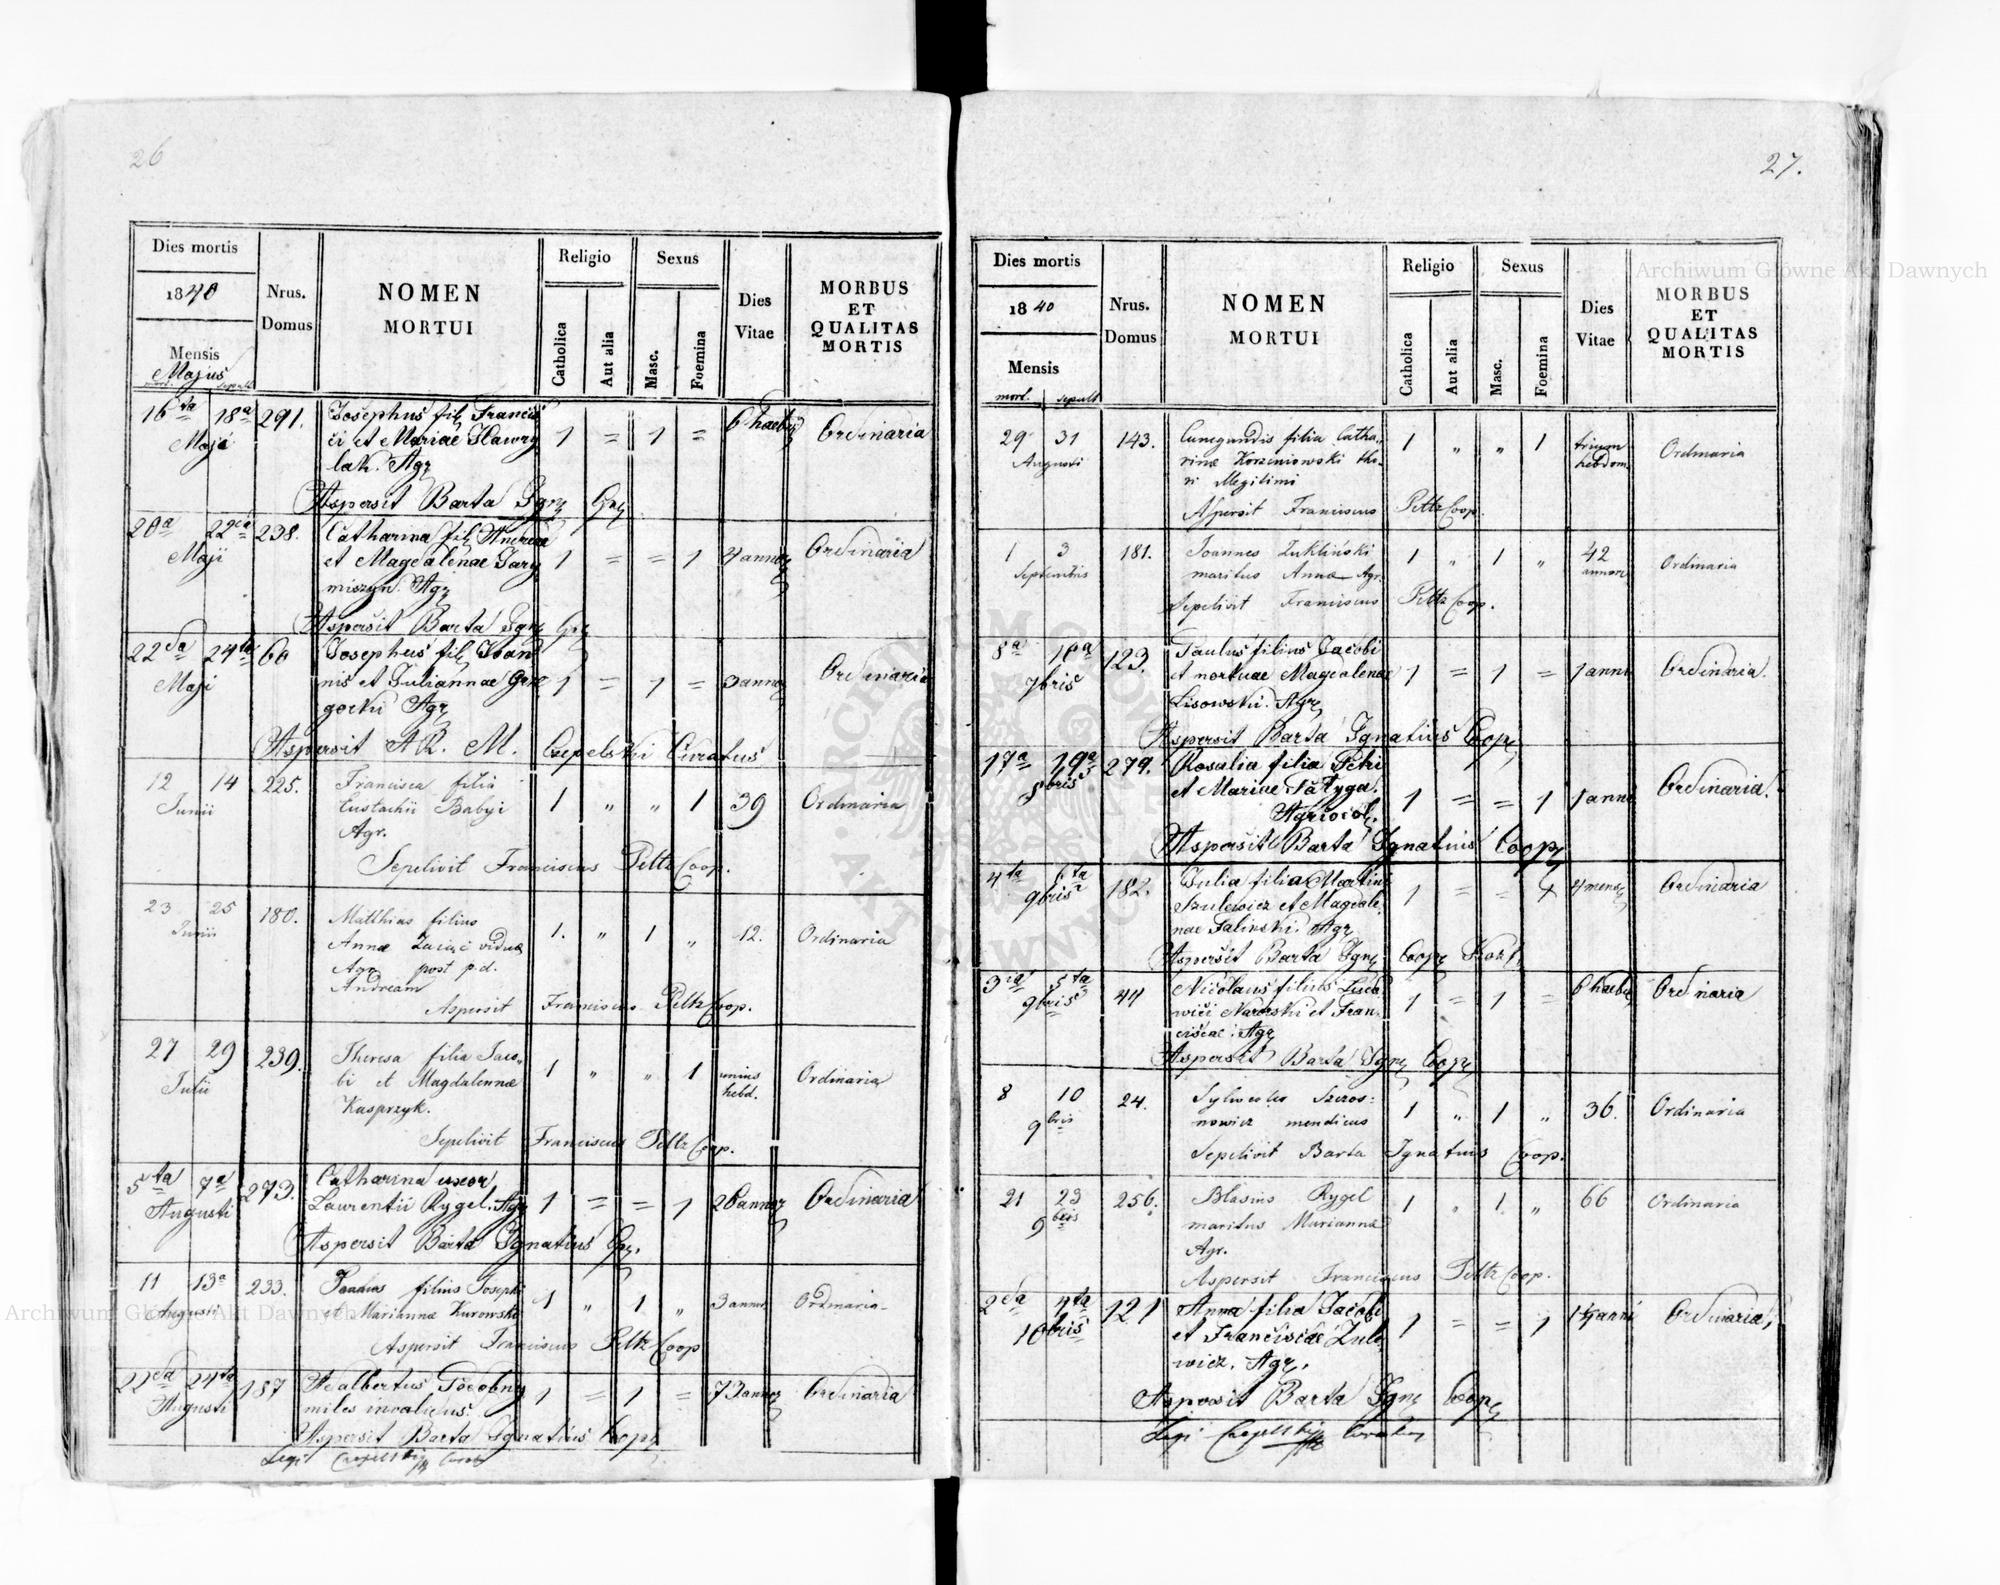 26
Dies mortis
1840
Mensis
Majus
mort. sepult
Nrus.
Domus
NOMEN
MORTUI
Religio
Catholica
Aut alia
Sexus
Masc.
Foemina
Dies
Vitae
MORBUS
ET
QUALITAS
MORTIS
16ta 18a 291. Josephus fil Francis 1 = 1 = 6 haebd Ordinaria
Maji ci et Mariae Hawry
lak. Agr
Aspersit Barta Ign
20a 22da 238. Catharina fil Andreae 1 = = 1 4 annor Ordinaria
Maji et Magdalenae Jary
miszyn. Agr
Aspersit Barta Ign
22da 24ta 60 Josephus fil Joan 1 = 1 = 3 annor Ordinaria
Maji nis et Juliannae
Agr
Aspersit AR. M. Czepelski Curatus
12 14 225. Francisca filia 1 " " 1 39 Ordinaria
Junii Eustachii Babyi
Agr.
Sepelivit Franciscus Peltz Coop.
23 25 180. Matthias filius 1. " 1 " 12. Ordinaria
Junii Annae vidua
Agr. post p.d.
Andream
Aspersit Franciscus Peltz Coop.
27 29 239. Theresa filia Jaco- 1 " " 1 unius Ordinaria
Julii bi et Magdalennae hebd.
Kasprzyk.
Sepelivit Franciscus Peltz Coop.
5ta 7a 273. Catharina uxor 1 = = 1 26 annor Ordinaria
Augusti Laurentii Rygel. Agr
Aspersit Barta Ignatius
11 13a 233. filius Josephi 1 " 1 " 3 annor Ordinaria
Augusti et Mariannae Kurowski
Aspersit Franciscus Peltz Coop
22da 24ta 187 Adalbertus 1 = 1 = 73 annor Ordinaria
Augusti miles invalidus.
Aspersit Barta Ignatius Coop
Legi Czepelski
27.
Dies mortis
1840
Mensis
mort. sepult
Nrus.
Domus
NOMEN
MORTUI
Religio
Catholica
Aut alia
Sexus
Masc.
Foemina
Dies
Vitae
MORBUS
ET
QUALITAS
MORTIS
29 31 143. Cunegundis filia Catha- 1 " " 1 trium Ordinaria
Augusti rinae Korzeniowski tho- hebdom
ri
Aspersit Franciscus Peltz Coop.
1 3 181. Joannes Zukliński 1 " 1 " 42 Ordinaria
Septembris maritus Annae Agr. annor
Sepelivit Franciscus Peltz Coop.
8a 10a 123. Paulus filius Jacobi 1 = 1 = 1 anni Ordinaria.
7bris et Magdalenae
Lisowski. Agr
Aspersit Barta Ignatius Coop
17a 19a 279. Rosalia filia Petri 1 = = 1 1 anni Ordinaria.
8bris et Mariae Patyga.
Agricol.
Aspersit Barta Ignatius Coop
4ta 6ta 182. Julia filia Martini 1 = = 1 4 mens Ordinaria
9bris Szulewicz et Magdale
nae Falinski. Agr
Aspersit Barta Ign Coop
3ia 5ta 44 Nicolaus filius 1 = 1 = 6 haebd Ordinaria
9bris et Fran-
ciscae. Agr
Aspersit Barta Ign Coop
8 10 24. Sylvester 1 " 1 " 36. Ordinaria
9bris nowicz mendicus
Sepelivit Barta Ignatius Coop.
21 23 256. Blasius Rygel 1 " 1. " 66 Ordinaria
9bris maritus Marianna
Agr.
Aspersit Franciscus Peltz Coop.
2da 4ta 121 Anna filia Jacobi 1 = = 1 anni Ordinaria
10bris et Franciscae Zule
wicz. Agr.
Aspersit Barta Ign Coop
Legi Czepelski
Archiwum Główne Akt Dawnych
Archiwum Główne Akt Dawnych